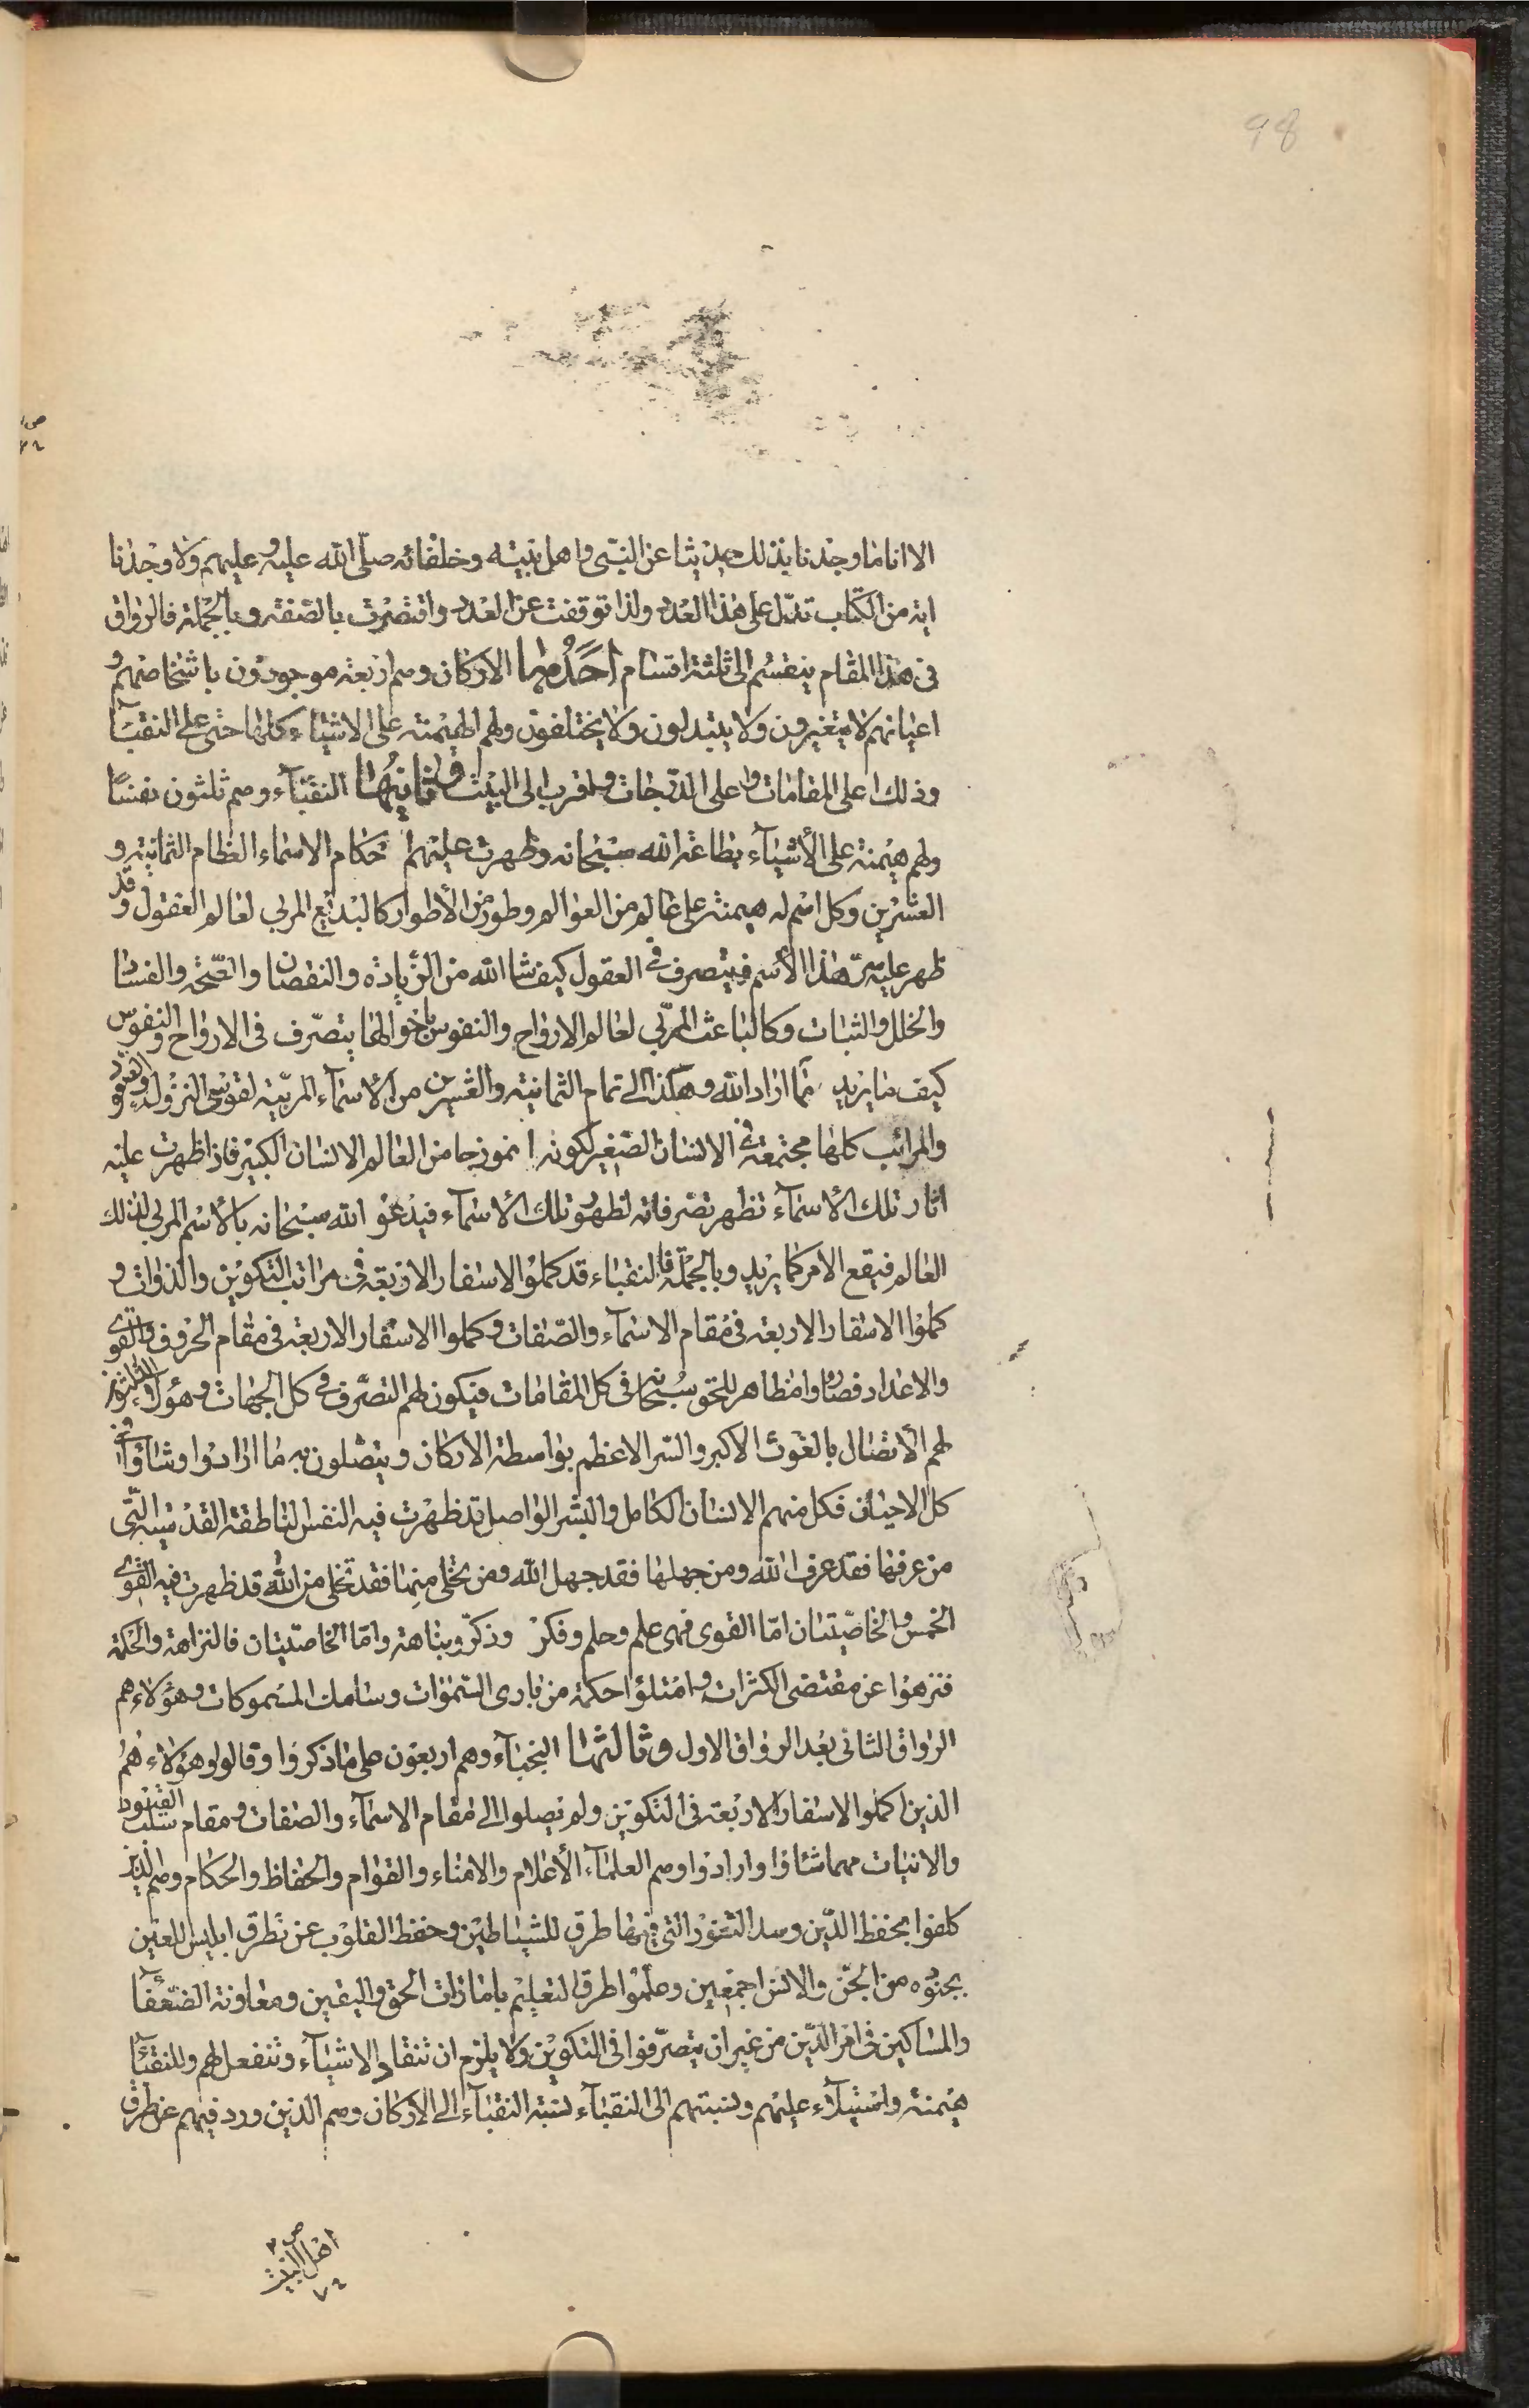 98
الا انا ما وجدنا بذلك حديثا عن النبى واهل بيته وخلفائه صلّى الله عليه وعليهم ولا وجدنا
اية من الكتاب تدل على هذا العدد ولذا توقفت عن العدد واقتصرت بالصفة وبالجملة فالرواق
فى هذا المقام ينقسم الى ثلثة اقسام احدُها الاركان وهم اربعة موجودون باشخاصهم و
اعيانهم لا يتغيرون ولا يتبدلون ولا يختلفون ولهم الهيمنة على الاشياء كلها حتى على النقباء
وذلك اعلى المقامات واعلى الدرجات واقرب الى البيت وثانيها النقباء وهم ثلثون نفسًا
ولهم هيمنة على الأشياء بطاعة الله سبحانه وظهرت عليهم احكام الاسماء العظام الثمانية و
العشرين وكل اسم له هيمنة على عالم من العوالم وطور من الأطوار كالبديع المربى لعالم العقول وقد
ظهر عليه سرّ هذا الأسم فيتصرف فى العقول كيف شا الله من الزيادة والنقصان والصّحة والفساد
والخلل والثبات وكالباعث المربّى لعالم الارواح والنفوس باخوالها يتصرّف فى الارواح والنفوس
كيف ما يريد مما اراد الله وهكذا الى تمام الثمانية والعشرين من الأسماء المربّية لقوسى النزول والصعود
والمراتب كلها مجتمعة فى الانسان الصّغير لكونه انموزجا من العالم الانسان الكبير فاذا ظهرت عليه
اثار تلك الأسماء تظهر تصرفاته لظهور تلك الأسماء فيدعو الله سبحانه بالأسم المربى لذلك
العالم فيقع الامر كما يريد وبالجملة فالنقباء قد كملوا الاسفار الاربعة فى مراتب التكوين والذوات و
كملوا الاسفار الاربعة فى مقام الاسماء والصّفات وكملوا الاسفار الاربعة فى مقام الحروف والقوى
والاعداد فصاروا مظاهر للحق سبحانه فى كل المقامات فيكون لهم التصرّف فى كل الجهات وهؤلاء الثلثون
لهم الأتصال بالغوث الاكبر والسّر الاعظم بواسطة الاركان ويتصلون به ما ارادوا وشاؤا فى
كل الاحيان فكل منهم الانسان الكامل والبشر الواصل قد ظهرت فيه النفس الناطقة القدسية الّتى
من عرفها فقد عرف الله ومن جهلها فقد جهل الله ومن تخلى منها فقد تخلى من الله قد ظهرت فيه القوى
الخمس والخاصّيتان امّا القوى فهى علم وحلم وفكر وذكر ونباهة وامّا الخاصّيتان فالنزاهة والحكمة
فتنزهوا عن مقتضى الكثرات وامتلؤا حكمة من بارى السّموات وسامك المسموكات وهؤلاء هم
الرواق الثانى بعد الرواق الاول وثالثها النجباء وهم اربعون على ما ذكروا وقالوا وهؤلاء هُم
الذين اكملوا الاسفار الاربعة فى التكوين ولم يصلوا الى مقام الاسماء والصفات ومقام سلب القيود
والانيات مهما شاؤا وارادوا وهم العلماء الأعلام والامناء والقوام والحفاظ والحكام وهم الذين
كلفوا بحفظ الدّين وسد الثغور التى فيها طرق للشياطين وحفظ القلوب عن تطرق ابليس اللعين
بجنوده من الجنّ والانس اجمعين وعلموا طرق التعليم بامارات الحق واليقين ومعاونة الضعفا
والمساكين فى امر الدّين من غير ان يتصرّفوا فى التكوين ولا يلزم ان تنقاد الاشياء وتنفعل لهم وللنقباء
هيمنة واستيلاء عليهم ونسبتهم الى النقباء نسبة النقباء الى الاركان وهم الذين ورد فيهم عن طرق
اهل البيت